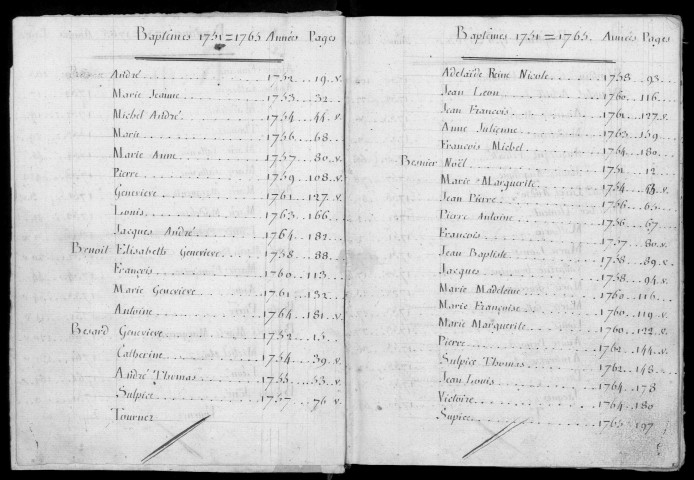 Baptêmes 1751=1765 Années Pages
André 1752 19.v.
Marie Jeanne 1753 32
Michel André 1754 44.v.
Marie 1756 68
Marie Anne 1757 80.v.
Pierre 1759 108.v.
Genevieve 1761 127.v.
Louis 1763 166
Jacques André 1764 182
Benoit Elisabeth Genevieve 1758 88
François 1760 113
Marie Genevieve 1761 132
Antoine 1764 181.v.
Besard Genevieve 1752 15
Catherine 1754 39.v.
André Thomas 1755 53.v.
Sulpice 1757 76.v.
Tournez
Baptêmes 1751=1765. Années Pages
Adelaïde Reine Nicole 1758 93
Jean Leon 1760 116
Jean François 1761 127.v.
Anne Julienne 1763 159
François Michel 1764 180
Besnier Noël 1751 12
Marie Marguerite 1754 v.
Jean Pierre 1756 65
Pierre Antoine 1756 67
François 1757 80.v.
Jean Baptiste 1758 89.v.
Jacques 1758 94.v.
Marie Madeleine 1760 116
Marie Françoise 1760 119.v.
Marie Marguerite 1760 122.v.
Pierre 1762 144.v.
Sulpice Thomas 1762 148
Jean Louis 1764 178
Victoire 1764 180
Supice 1765 197